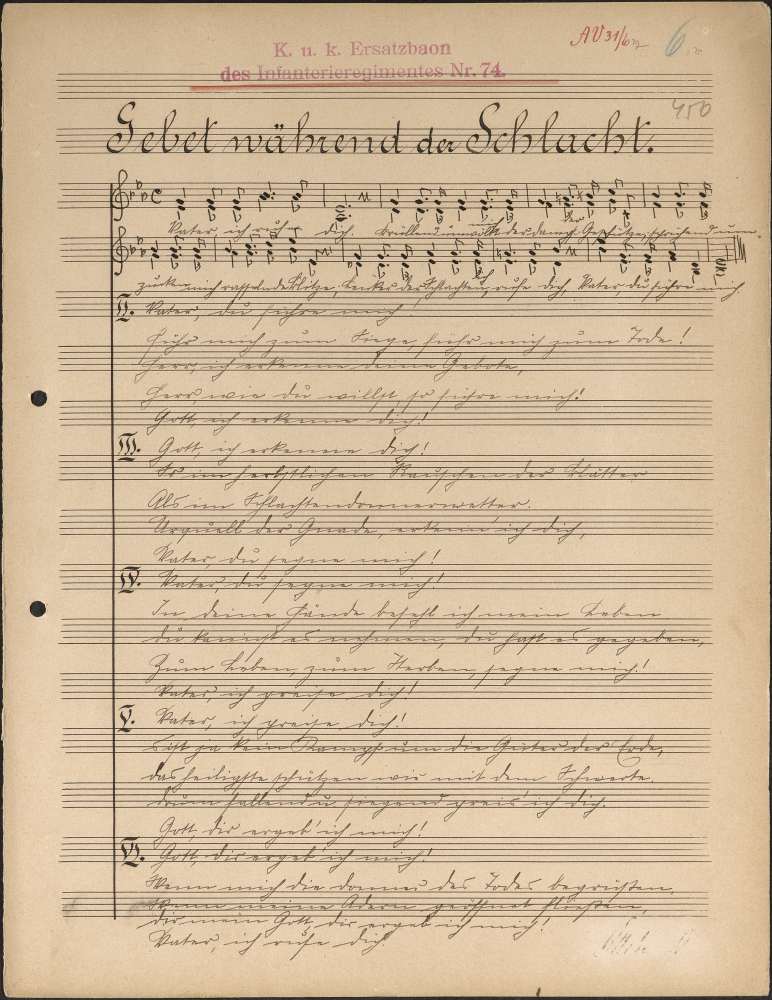 K. u. k. Ersatzbaon
des Infanterieregimentes Nr. 74.
AV 31/6
6
450
Gebet während der Schlacht.
Vater, ich rufe dich. Brüllend umwölkt der dampf der Geschütze, sprühend um
zucken mich rasselnde Blitze; Lenker der Schlachten, ich rufe dich, Vater, du führe mich
II. Vater, du führe mich!
Führ mich zum Siege, führ mich zum Tode!
Herr, ich erkenne deine Gebote,
Herr, wie du willst, so führe mich!
Gott, ich erkenne dich!
III. Gott, ich erkenne dich!
So im herbstlichen Rauschen der Blätter
Als im Schlachtendonnerwetter.
Urquell der Gnade, erkenn' ich dich,
Vater, du segne mich!
IV. Vater, du segne mich!
In deine Hände befehl ich mein Leben
du kannst es nehmen, du hast es gegeben,
Zum Leben, zum Sterben, segne mich!
Vater, ich preise dich!
V. Vater, ich preise dich!
s ist ja kein Kampf um die Güter der Erde,
das heiligste schützen wir mit dem Schwerte.
drum fallend u. siegend preis' ich dich.
Gott, dir ergeb' ich mich!
VI. Gott, dir ergeb' ich mich!
Wenn mich die donner des Todes begrüßen,
Wenn meine Adern geöffnet fließen,
dir mein Gott, dir ergeb ich mich!
Vater, ich rufe dich